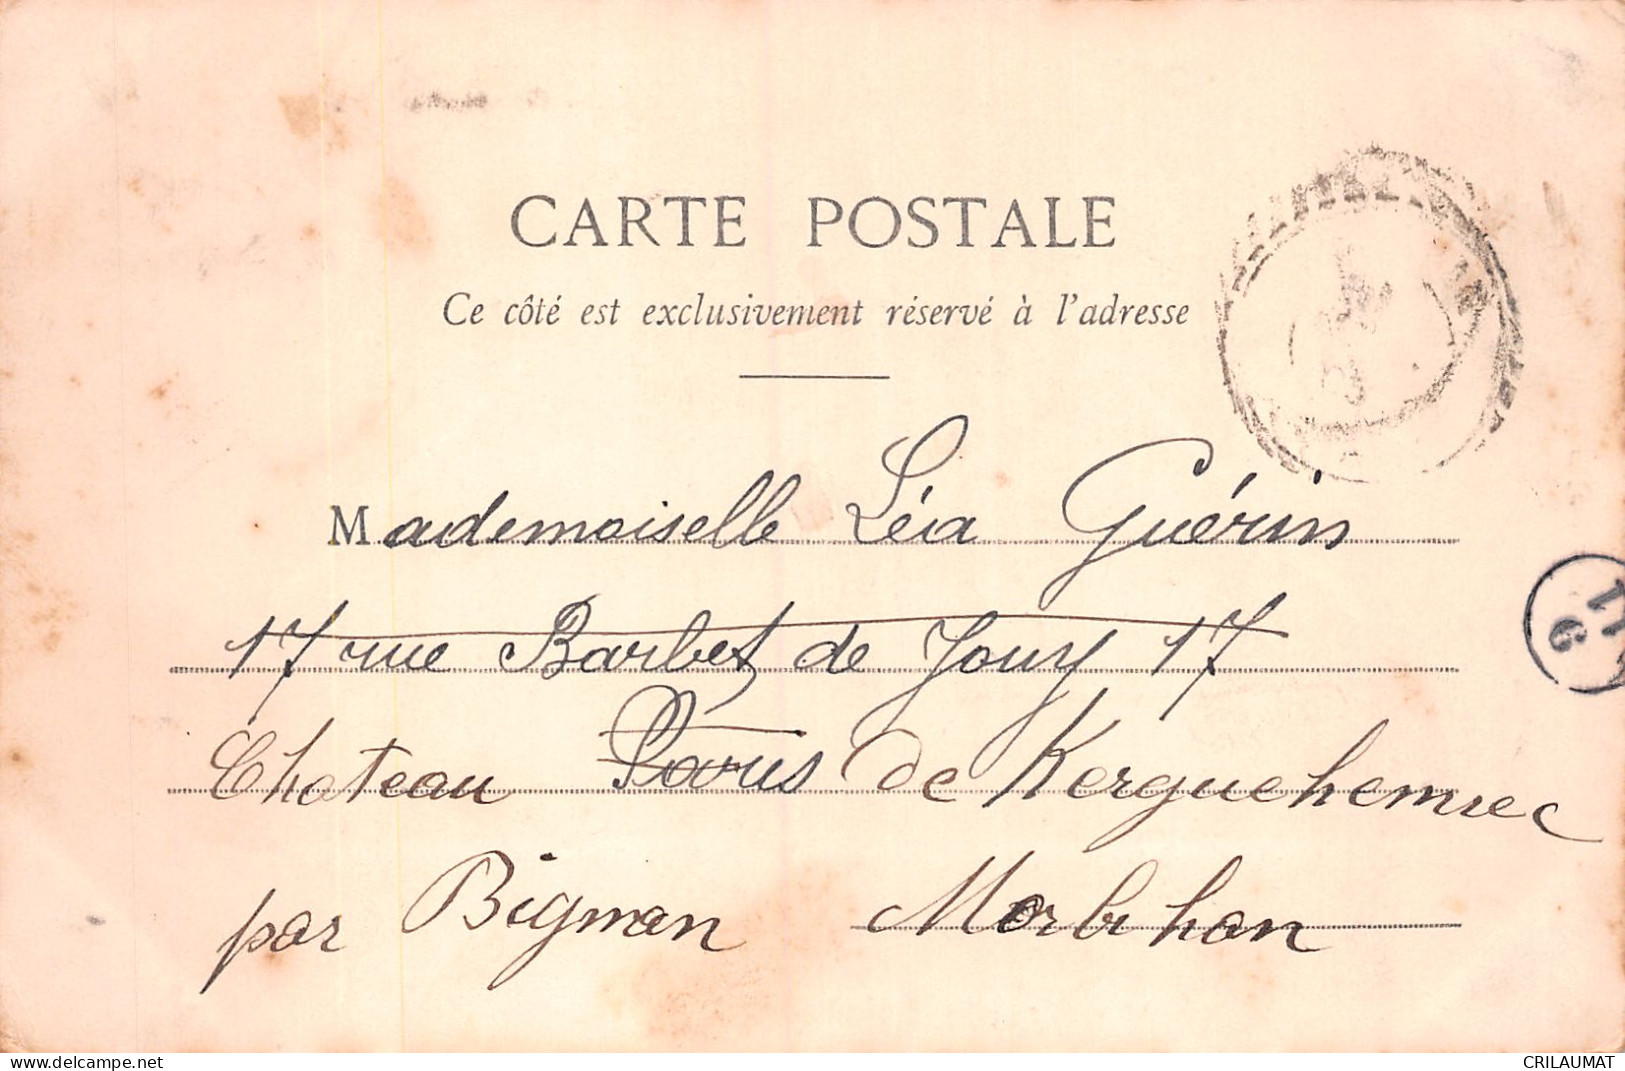 CARTE POSTALE
Ce côté est exclusivement réservé à l'adresse
Mademoiselle Léa Guérin
17 rue Barbet de Jouy 17
Chateau Paris de Kerguehennec
par Bignan Morbihan
11
6
www.delcampe.net
CRILAUMAT